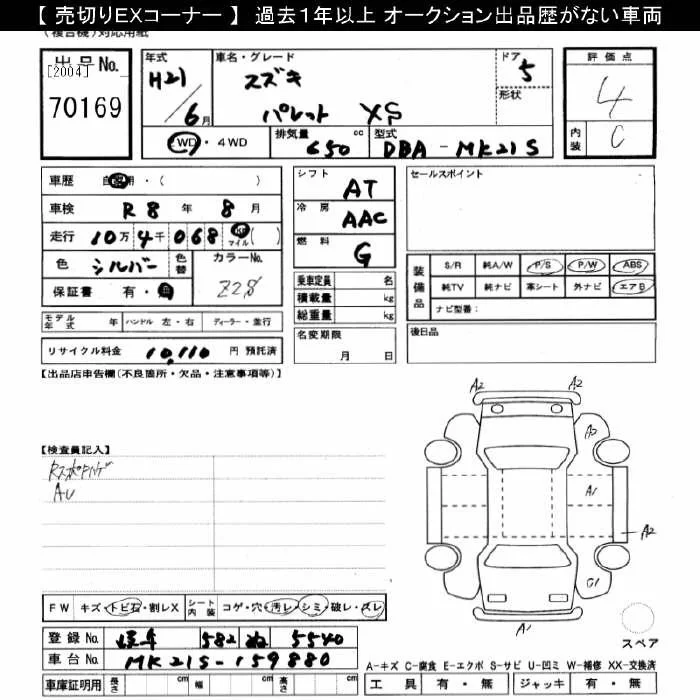 【 売切りEXコーナー 】 過去1年以上 オークション出品歴がない車両
(複合機)対応用紙
出品No. [2004] 70169
年式 H21/6月
車名・グレード スズキ パレット XS
ドア 5
形状
評価点 4
内装 C
2WD・4WD
排気量 650 cc
型式 DBA-MK21S
車歴 自家用・( )
車検 R8年 8月
走行 10万 4千 068 km マイル ( )
色 シルバー 色替
カラーNo. Z2S
保証書 有・無
シフト AT
冷房 AAC
燃料 G
乗車定員 名
積載量 kg
総重量 kg
名変期限 月 日
セールスポイント
装備品 S/R 純A/W P/S P/W ABS
純TV 純ナビ 革シート 外ナビ エアB
ナビ型番:
後日品
モデル年式 年 ハンドル 左・右 ディーラー・並行
リサイクル料金 10,110 円 預託済
【出品店申告欄(不良箇所・欠品・注意事項等)】
【検査員記入】
AU
A2 A2
A1
A2
A1
スペア
FW キズ・トビ石・割レX シート内装 コゲ・穴・汚レ・シミ・破レ・スレ
登録No. 岐阜 582 ぬ 5540
車台No. MK21S-159880
車庫証明用 長さ cm 幅 cm 高さ cm
A-キズ C-腐食 E-エクボ S-サビ U-凹ミ W-補修 XX-交換済
工具 有・無 ジャッキ 有・無